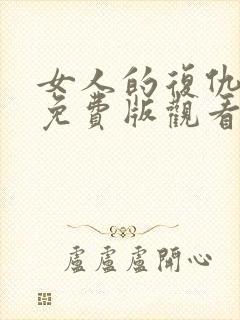 女人的復仇
免費版觀看
盧盧盧開心